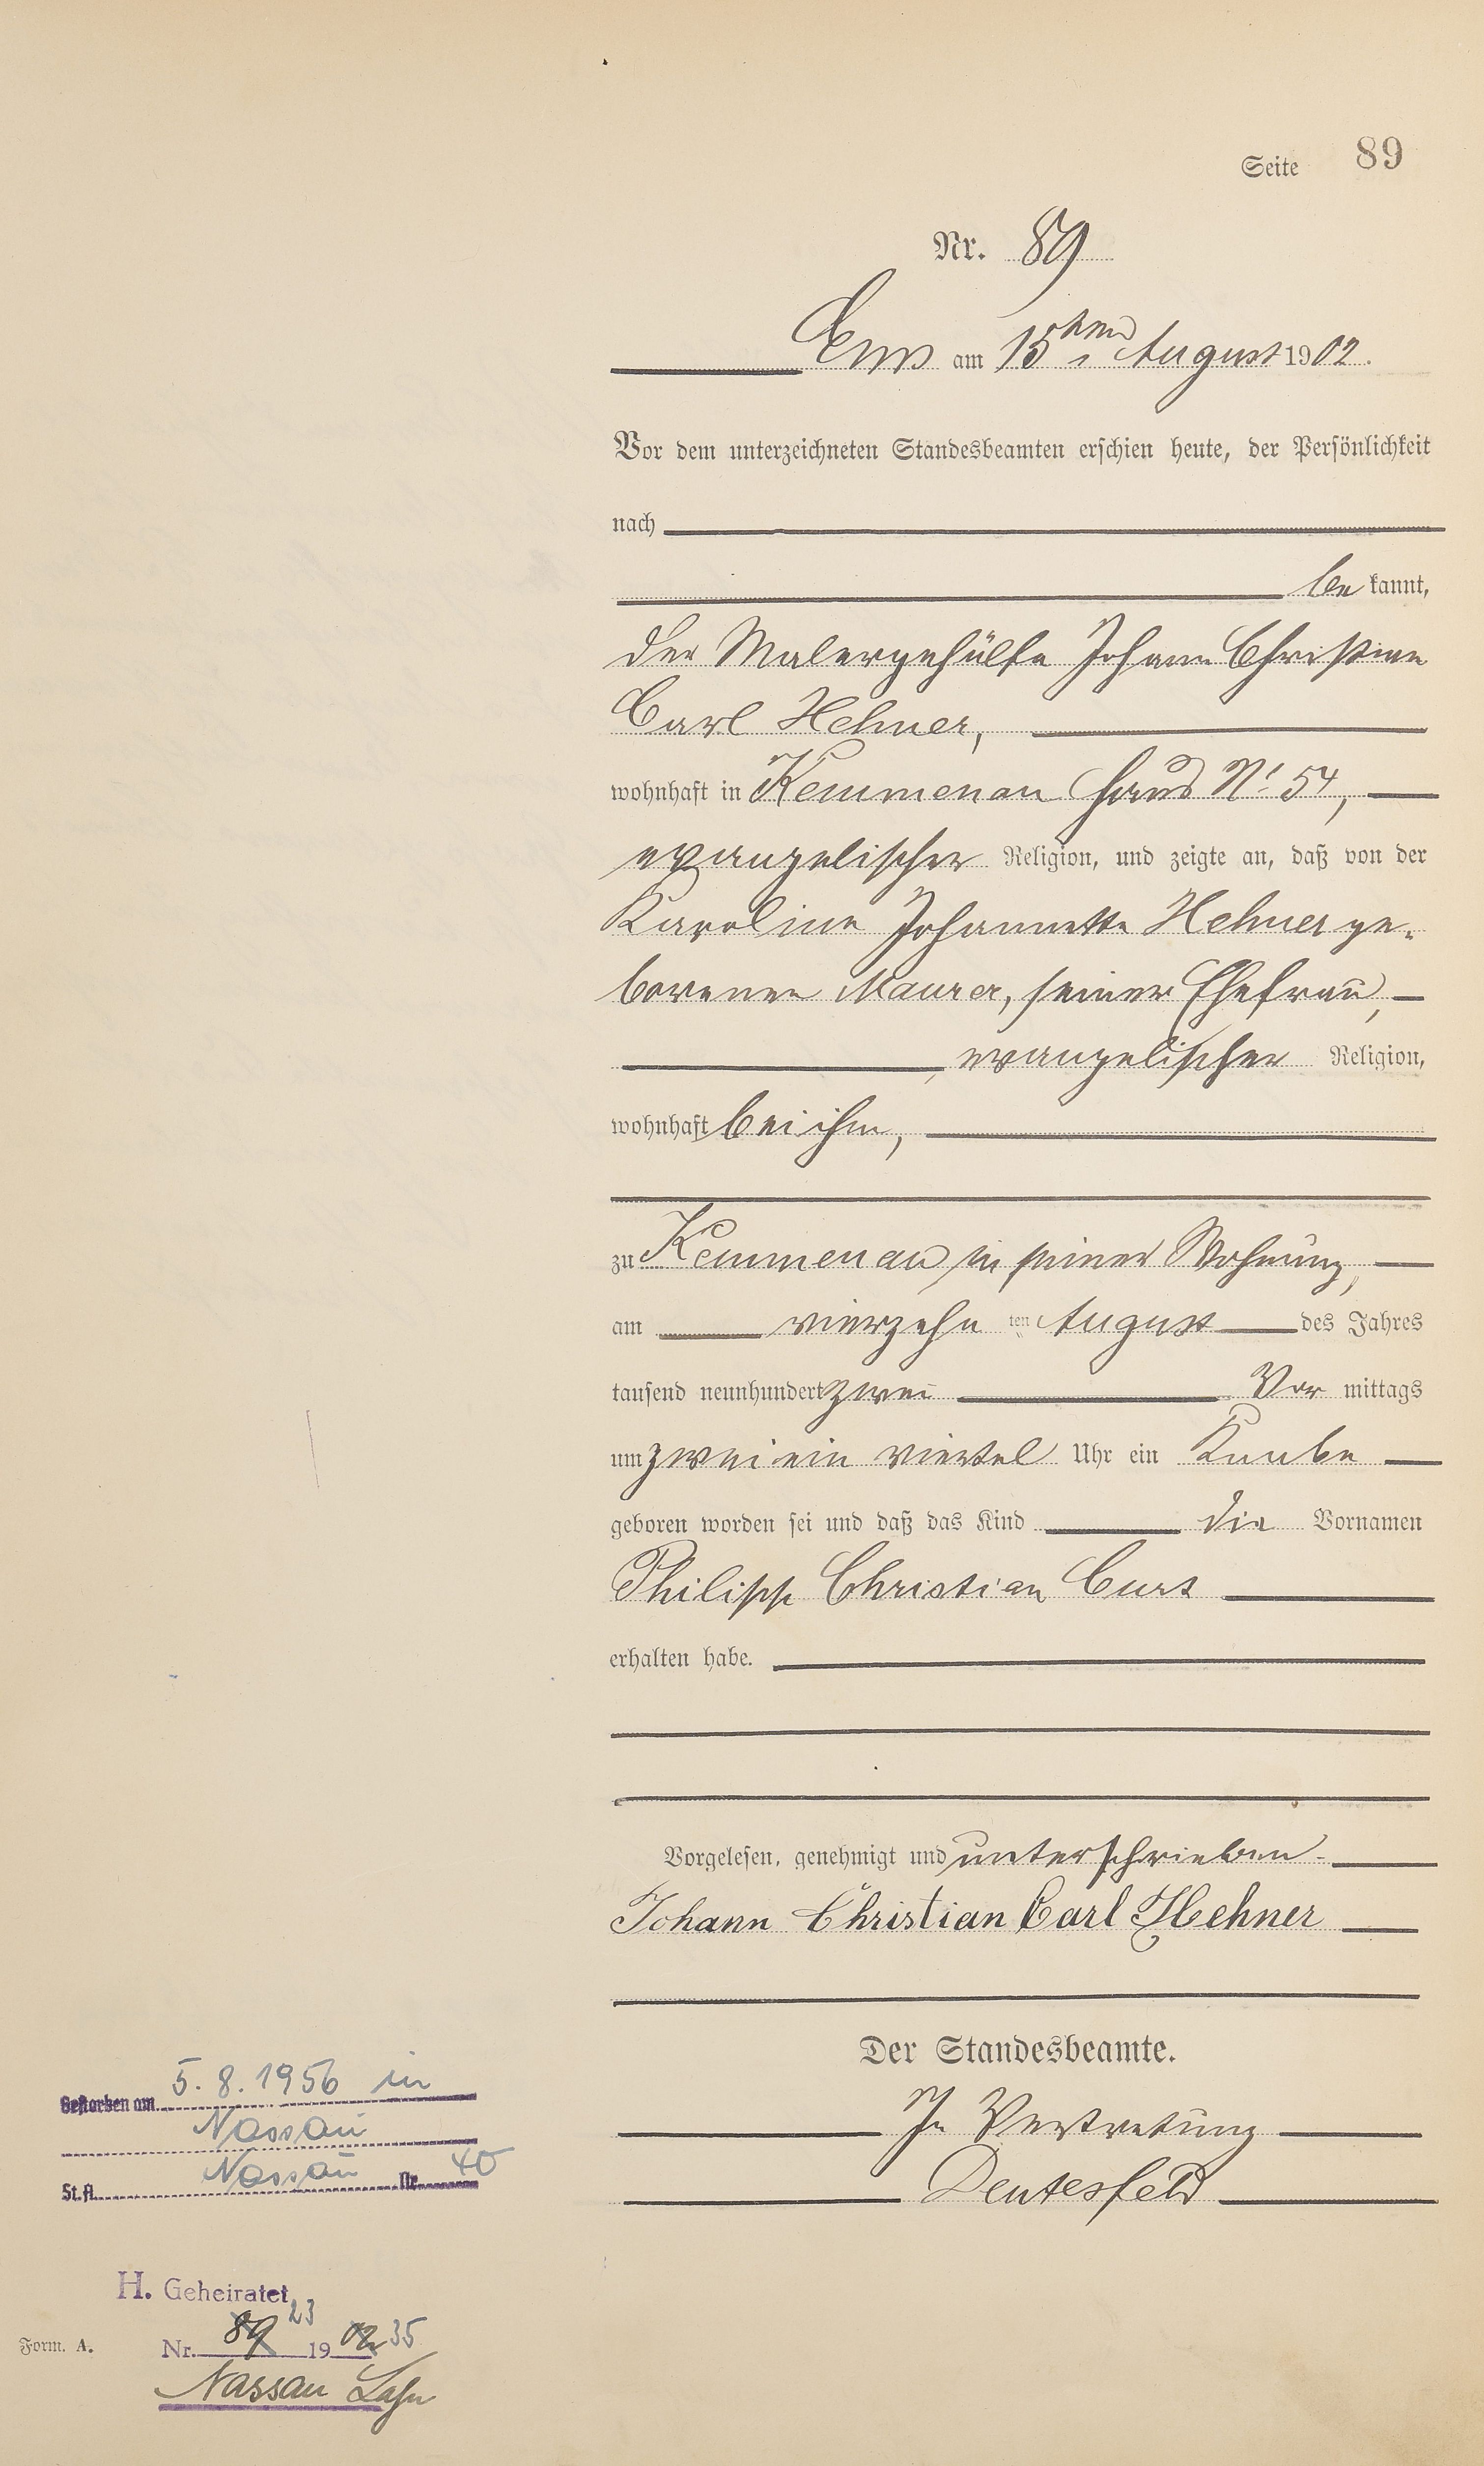 Seite 89
Nr. 89
Ems am 15ten August 1902.
Vor dem unterzeichneten Standesbeamten erschien heute, der Persönlichkeit
nach
be kannt,
der Malergehülfe Johann Christian
Carl Hehner,
wohnhaft in Kemmenau Haus Nr. 54,
evangelischer Religion, und zeigte an, daß von der
Karoline Johannette Hehner ge-
borenen Maurer, seiner Ehefrau,
evangelischer Religion,
wohnhaft bei ihm,
zu Kemmenau in seiner Wohnung,
am vierzehn ten August des Jahres
tausend neunhundert zwei Vor mittags
um zwei ein viertel Uhr ein Knabe
geboren worden sei und daß das Kind die Vornamen
Philipp Christian Curt
erhalten habe.
Vorgelesen, genehmigt und unterschrieben.
Johann Christian Carl Hehner
Der Standesbeamte.
In Vertretung
Deutesfeld
Gestorben am 5.8.1956 in
Nassau
St.A. Nassau Nr. 40
H. Geheiratet
Nr. 89 23 19 02 35
Nassau Lahn
Form. A.